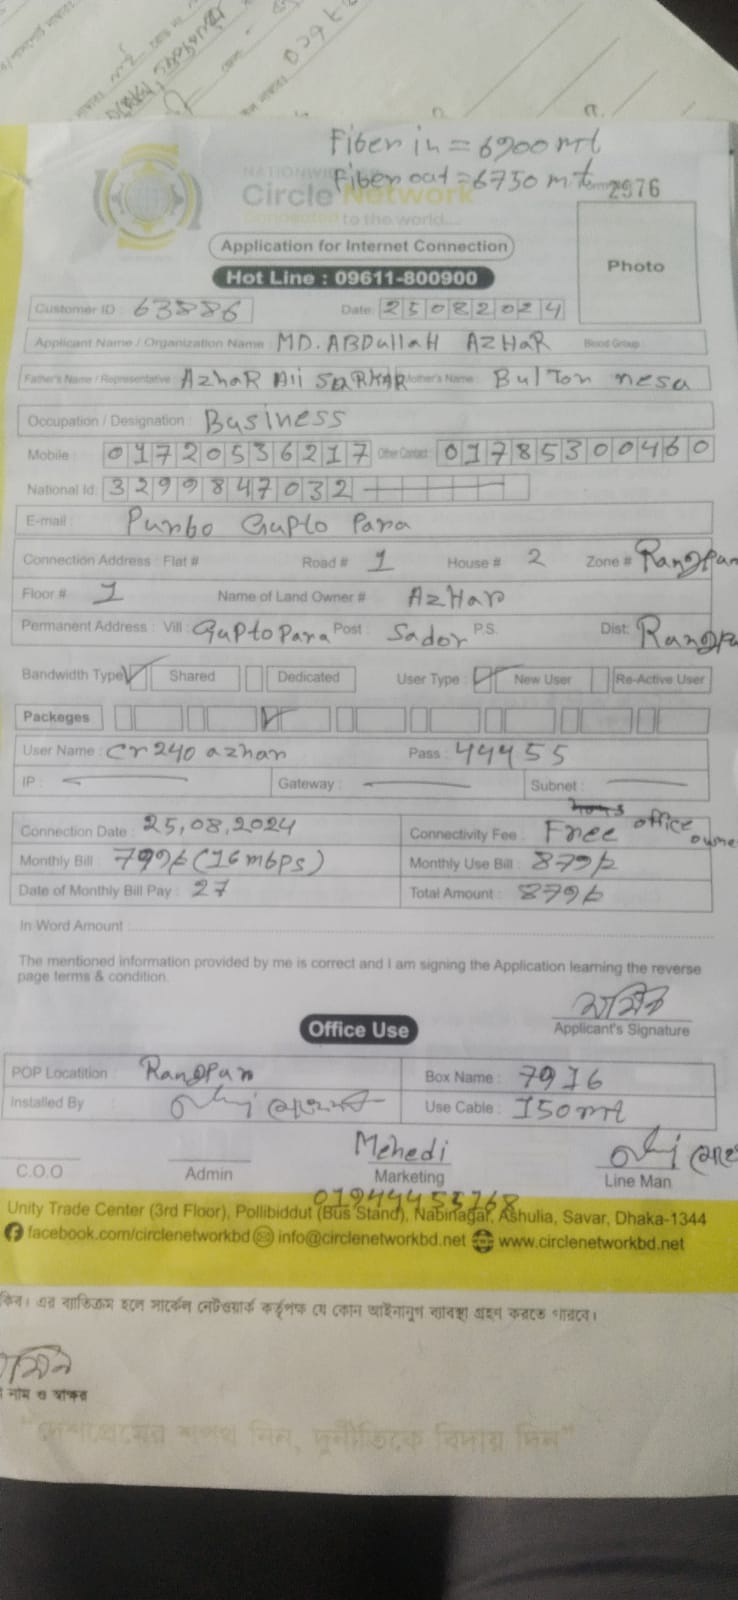 Fiber in = 6900 mt
NATIONWIDE
Fiber out = 6750 mt
Circle Network
2976
Connected to the world...
Application for Internet Connection
Photo
Hot Line : 09611-800900
Customer ID : 63886 Date: 25082024
Applicant Name / Organization Name : MD. ABDullaH AZHaR Blood Group :
Father's Name / Representative : AzhaR Ali SARKAR Mother's Name : BulTon nesa
Occupation / Designation : Business
Mobile : 01720536217 Other Contact : 01785300460
National Id: 3299847032
E-mail : Purbo Gupto Para
Connection Address : Flat # Road # 1 House # 2 Zone # Rangpur
Floor # 1 Name of Land Owner # AzHar
Permanent Address : Vill : GuptoPara Post : Sador P.S. Dist: Rangpu
Bandwidth Type Shared Dedicated User Type : New User Re-Active User
Packeges
User Name : cr240 azhar Pass : 44455
IP : Gateway : Subnet :
Connection Date : 25,08,2024 Connectivity Fee : Free office owne
Monthly Bill : 799/- (16mbps) Monthly Use Bill : 879/-
Date of Monthly Bill Pay : 27 Total Amount : 879/-
In Word Amount :
The mentioned information provided by me is correct and I am signing the Application learning the reverse
page terms & condition.
Office Use
Applicant's Signature
POP Locatition : Rangpur Box Name : 7916
Installed By : Use Cable : 150 mt
Mehedi
C.O.O Admin Marketing Line Man
01944455768
Unity Trade Center (3rd Floor), Pollibiddut (Bus Stand), Nabinagar, Ashulia, Savar, Dhaka-1344
facebook.com/circlenetworkbd info@circlenetworkbd.net www.circlenetworkbd.net
এর ব্যতিক্রম হলে সার্কেল নেটওয়ার্ক কর্তৃপক্ষ যে কোন আইনানুগ ব্যাবস্থা গ্রহণ করতে পারবে।
নাম ও স্বাক্ষর
"দেশপ্রেমের শপথ নিন, দুর্নীতিকে বিদায় দিন"